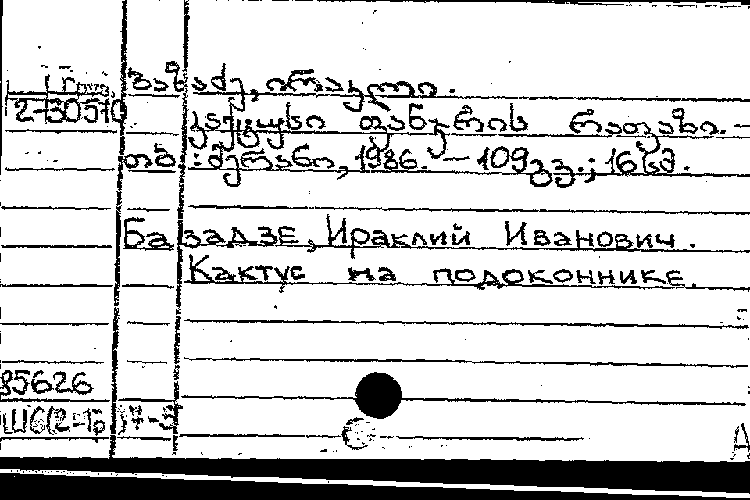 ბაზაძე, ირაკლი.
2-30510
კაქტუსი ფანჯრის რაფაზი. –
თბ.: მერანი, 1986. – 109გვ.; 16სმ.
Базадзе, Ираклий Иванович.
Кактус на подоконнике.
85626
Ш6(2=Гр)7-5
А